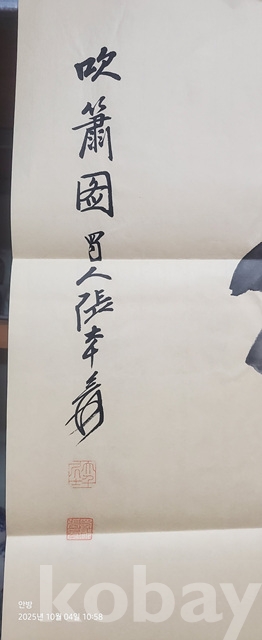 吹簫圖
蜀人張大千爰
안방
2025년 10월 04일 10:58
kobay